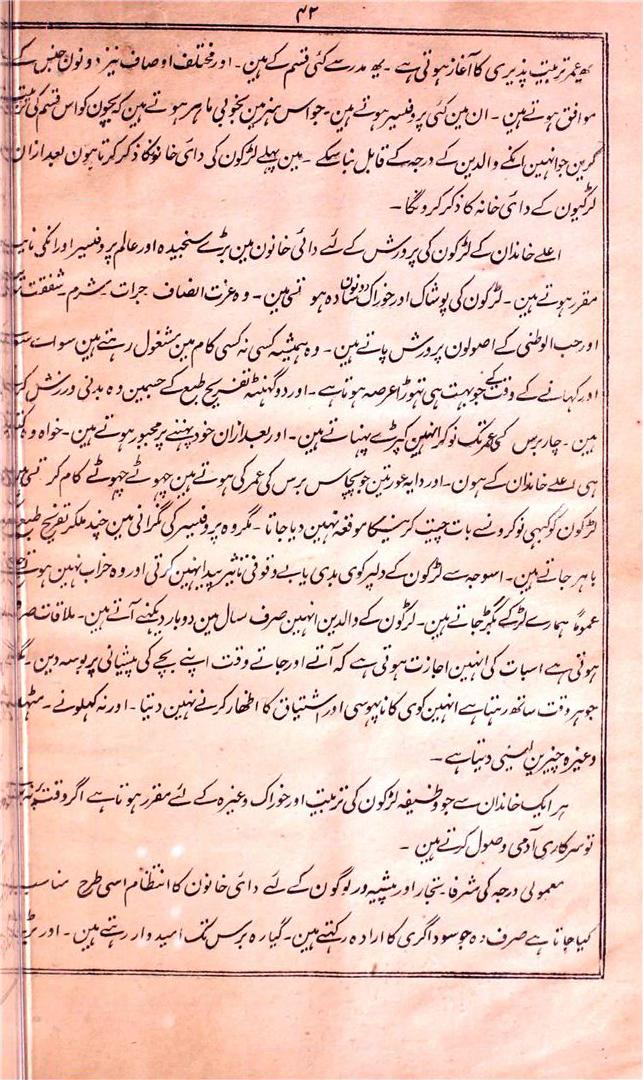 ۴۲
یہ عمر تربیت پذیری کا آغاز ہوتی ہے ۔ یہ مدرسے کئی قسم کے ہین ۔ اور مختلف اوصاف نیز دونون جنس کے
موافق ہوتے ہین ۔ ان مین کئی پروفیسر ہوتے ہین ۔ جو اس ہنر مین بخوبی ماہر ہوتے ہین کہ بچون کو اس قسم کی تربیت
کرین جو انہین انکے والدین کے درجہ کے قابل بنا سکے ۔ مین پہلے لڑکون کی دائی خانونکا ذکر کرتا ہون بعد ازان
لڑکیون کے دائی خانہ کا ذکر کرونگا ۔
اعلے خاندان کے لڑکون کی پرورش کے لئے دائی خانون مین بڑے سنجیدہ اور عالم پروفیسر اور انکی نایب
مقرر ہوتے ہین ۔ لڑکون کی پوشاک اور خوراک دونون سادہ ہوتی ہین ۔ وہ عزت انصاف جرات ۔ شرم ۔ شفقت
اور حب الوطنی کے اصولون پرورش پاتے ہین ۔ وہ ہمیشہ کسی نہ کسی کام مین مشغول رہتے ہین سواے سونے
اور کہانے کے وقت کے جو بہت ہی تہوڑا عرصہ ہوتا ہے ۔ اور دو گہنٹہ تفریح طبع کے جسمین وہ بدنی ورزش کرتے
ہین ۔ چار برس کی عمر تک نوکر انہین کپڑے پہناتے ہین ۔ اور بعد ازان خود پہننے پر مجبور ہوتے ہین ۔ خواہ وہ کتنے
ہی اعلے خاندان کے ہون ۔ اور دایہ عورتین جو پچاس برس کی عمر کی ہوتے ہین چہوٹے چہوٹے کام کرتی ہین
لڑکون کو کبہی نوکرونسے بات چیت کرنیکا موقعہ نہین دیا جاتا ۔ مگر وہ پروفیسر کی نگرانی مین چند ملکر تفریح طبع
باہر جاتے ہین ۔ اسوجہ سے لڑکون کے دلپر کوی بدی یا بے وقوفی تاثیر پیدا نہین کرتی اور وہ خراب نہین ہوتے
عموماً ہمارے لڑکے بگڑ جاتے ہین ۔ لڑکون کے والدین انہین صرف سال مین دوبار دیکہنے آتے ہین ۔ ملاقات صرف
ہوتی ہے اسبات کی انہین اجازت ہوتی ہے کہ آتے اور جاتے وقت اپنے بچے کی پیشانی پر بوسہ دین ۔
جو ہر وقت ساتھ رہتا ہے انہین کوی کاناپہوسی اور اشتیاق کا اظہار کرنے نہین دیتا ۔ اور نہ کہلونے ۔
وغیرہ چیزین لینی دیتا ہے ۔
ہر ایک خاندان سے جو وظیفہ لڑکون کی تربیت اور خوراک وغیرہ کے لئے مقرر ہوتا ہے اگر وقت
تو سرکاری آدمی وصول کرتے ہین ۔
معمولی درجہ کی شرفا ۔ تجار اور پیشیہ ور لوگون کے لئے دائی خانون کا انتظام اسی طرح مناسب
کیا جاتا ہے صرف وہ جو سوداگری کا ارادہ رکہتے ہین ۔ گیارہ برس تک امیدوار رہتے ہین ۔ اور